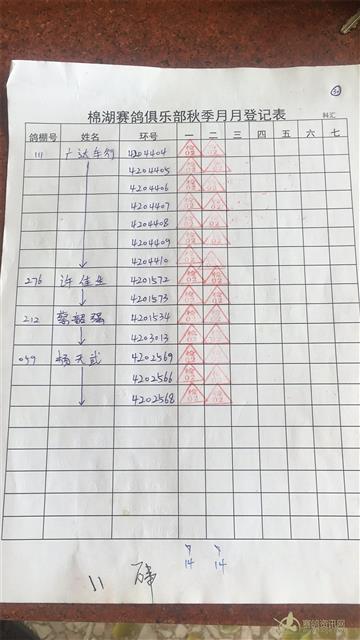 棉湖赛鸽俱乐部秋季月月登记表
科汇
鸽棚号 姓名 环号 一 二 三 四 五 六 七
111 广达车行 4204404
4204405
4204406
4204407
4204408
4204409
4204410
276 许佳生 4201572
4201573
212 蔡韶强 4201534
4203013
059 杨天武 4202569
4202566
4202568
14 14
11
赛鸽资讯网